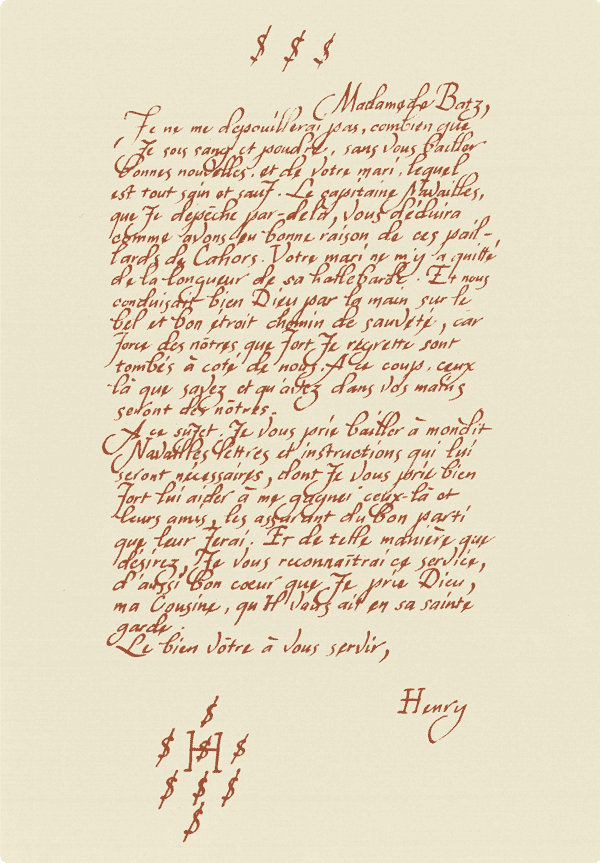 $ $ $
Madame de Batz,
Je ne me dépouillerai pas, combien que
Je sois sang et poudre, sans vous bailler
bonnes nouvelles, et de votre mari, lequel
est tout sain et sauf. Le capitaine Navailles,
que Je dépêche par-delà, vous déduira
comme avons eu bonne raison de ces pail-
lards de Cahors. Votre mari ne m'y a quitté
de la longueur de sa hallebarde. Et nous
conduisait bien Dieu par la main sur le
bel et bon étroit chemin de sauveté, car
force des nôtres que fort Je regrette sont
tombés à coté de nous. A ce coup, ceux
là que savez et qu'avez dans vos mains
seront des nôtres.
A ce sujet, Je vous prie bailler à mondit
Navailles lettres et instructions qui lui
seront nécessaires, dont Je vous prie bien
fort lui aider à me gagner ceux-là et
leurs amis, les assurant du bon parti
que leur ferai. Et de telle manière que
désirez, Je vous reconnaîtrai ce service,
d'aussi bon cœur que Je prie Dieu,
ma Cousine, qu'Il vous ait en sa sainte
garde.
Le bien vôtre à vous servir,
Henry
$
$ H $ $
$ $ $
$